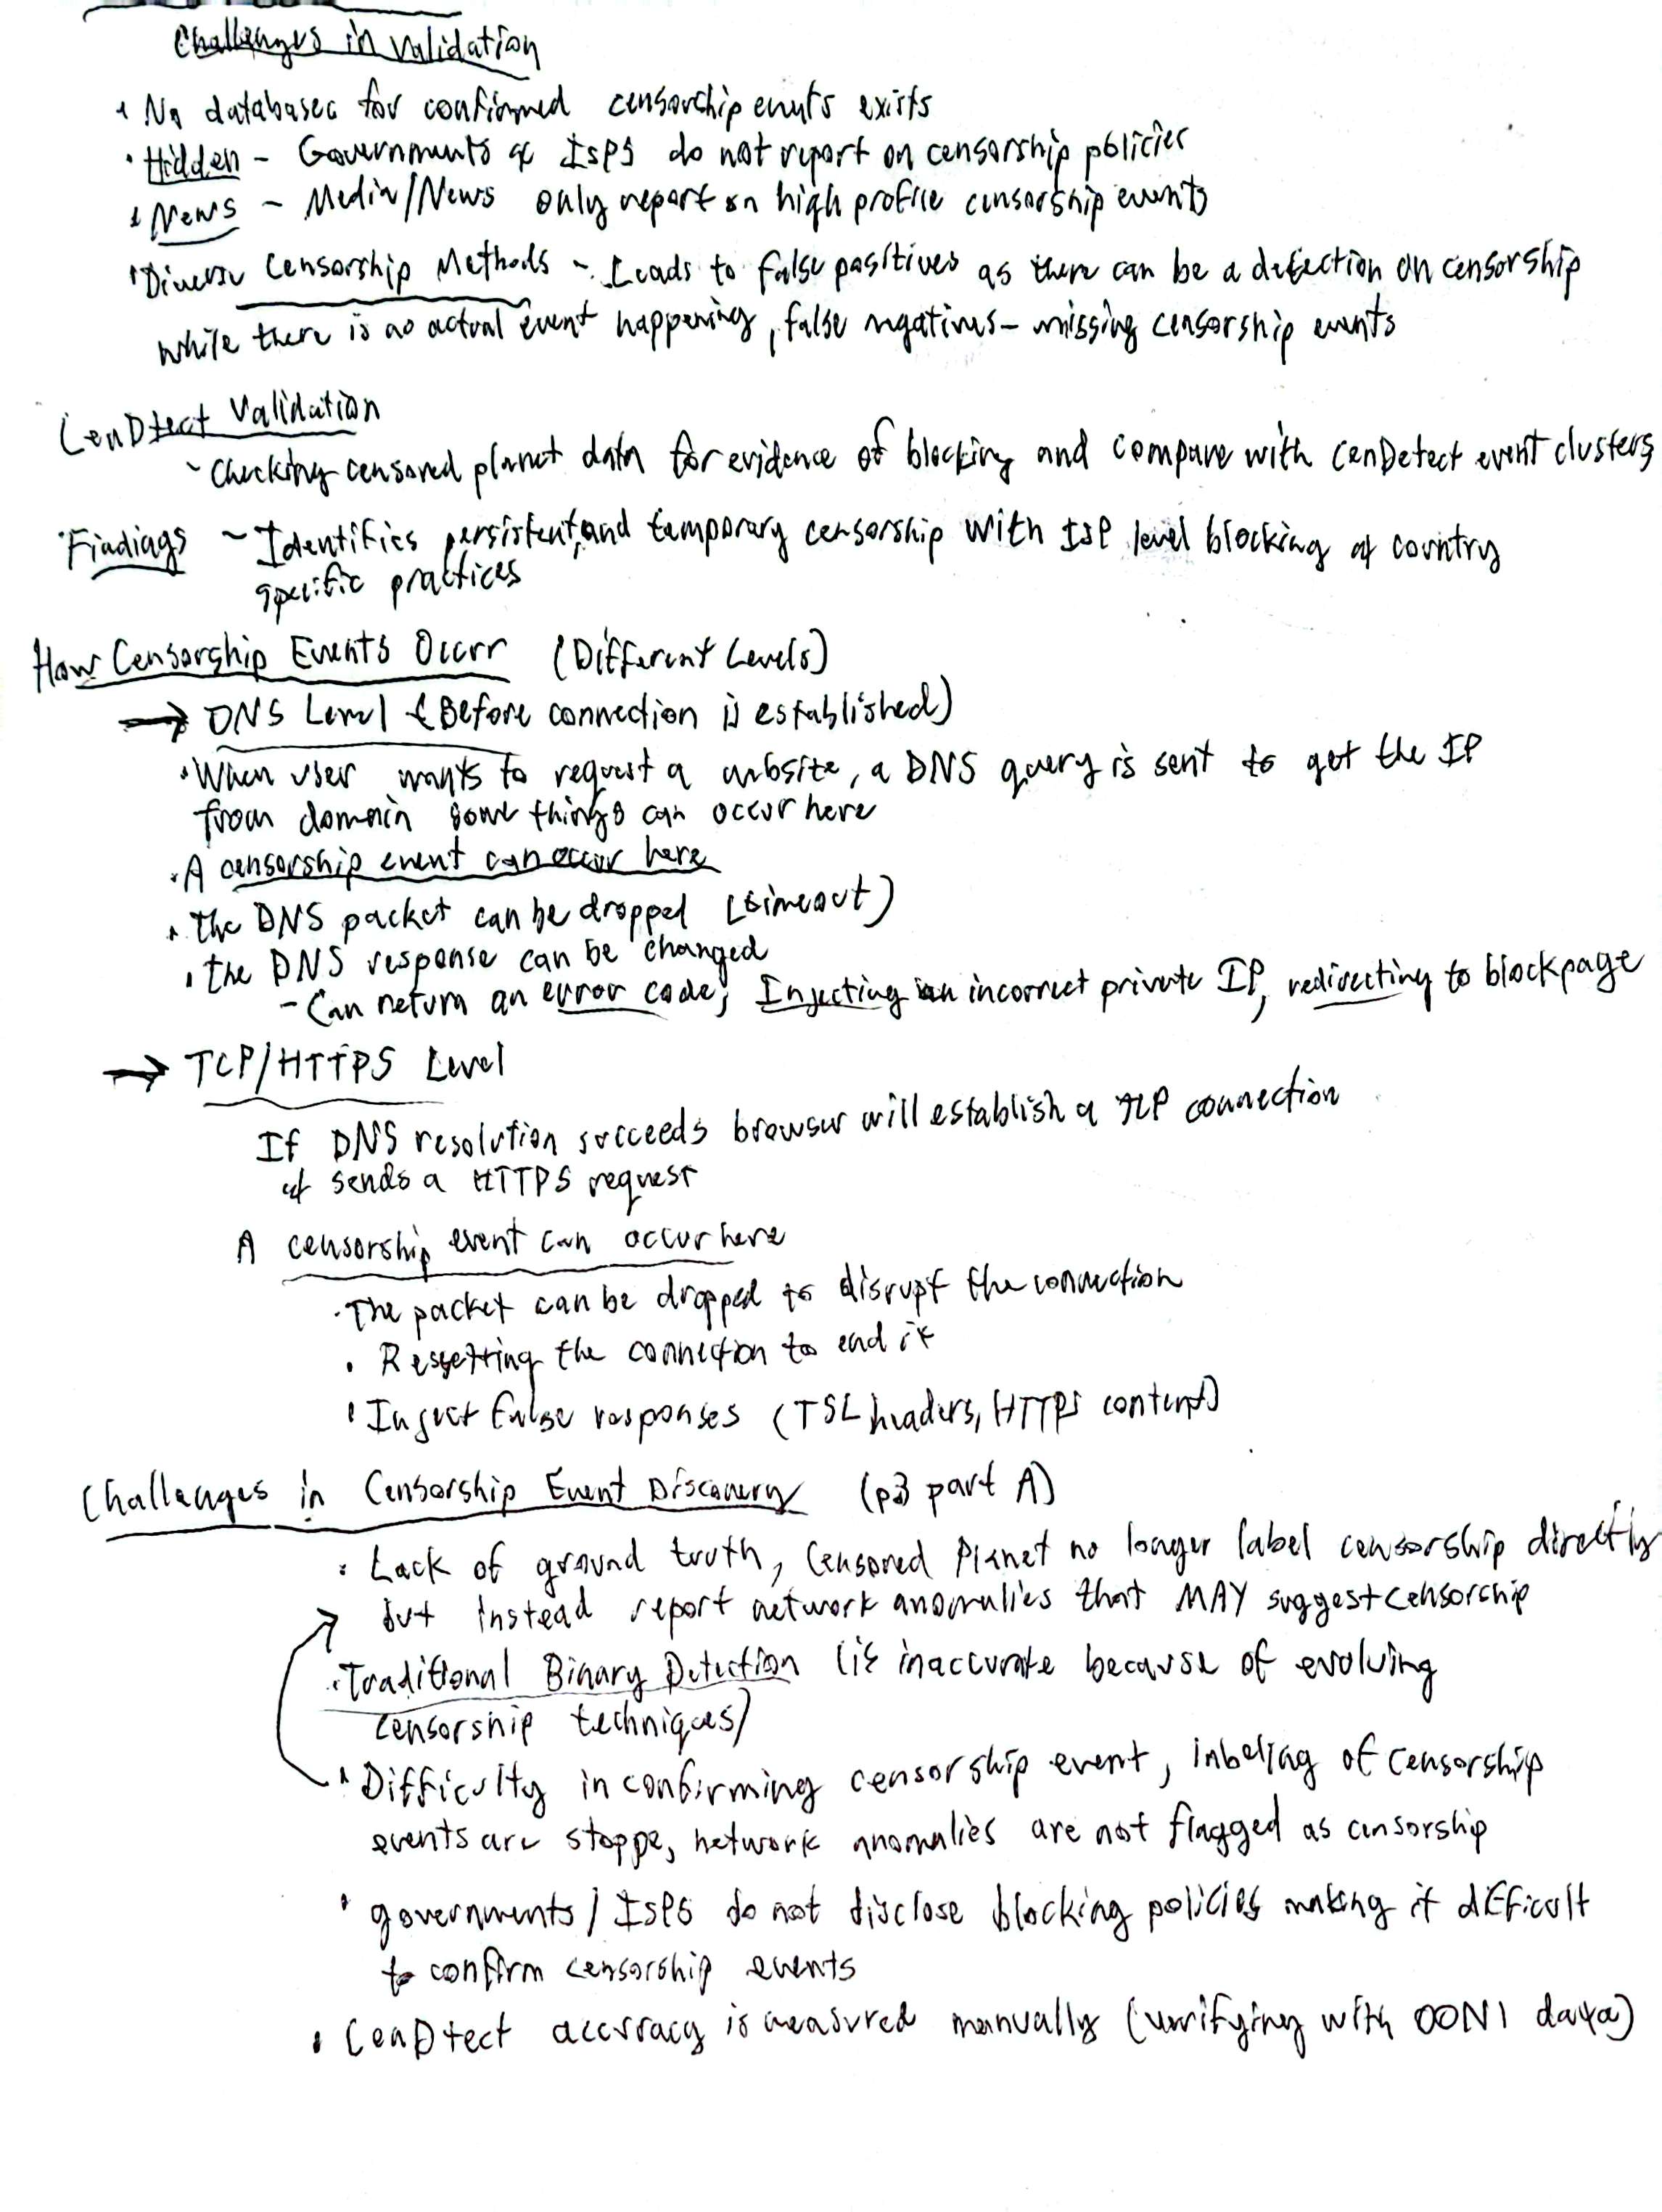 Challenges in Validation
• No databases for confirmed censorship events exists
• Hidden - Governments & ISPS do not report on censorship policies
• News - Media/News only report on high profile censorship events
• Diverse Censorship Methods - Leads to false positives as there can be a detection on censorship
while there is no actual event happening, false negatives - missing censorship events
CenDtect Validation
- Checking censored planet data for evidence of blocking and compare with CenDetect event clusters
• Findings - Identifies persistent, and temporary censorship with ISP level blocking & country
specific practices
How Censorship Events Occur (Different Levels)
→ DNS Level (Before connection is established)
• When user wants to request a website, a DNS query is sent to get the IP
from domain some things can occur here
• A censorship event can occur here
• the DNS packet can be dropped (timeout)
• the DNS response can be changed
- Can return an error code, Injecting an incorrect private IP, redirecting to blockpage
→ TCP/HTTPS Level
If DNS resolution succeeds browser will establish a TCP connection
& sends a HTTPS request
A censorship event can occur here
• The packet can be dropped to disrupt the connection
• Ressetting the connection to end it
• Inject false responses (TSL headers, HTTPS content)
Challenges in Censorship Event Discovery (p3 part A)
• Lack of ground truth, Censored Planet no longer label censorship directly
but instead report network anomalies that MAY suggest censorship
• Traditional Binary Detection (is inaccurate because of evolving
censorship techniques)
• Difficulty in confirming censorship event, labeling of censorship
events are stoppe, network anomalies are not flagged as censorship
• governments / ISPS do not disclose blocking policies making it difficult
to confirm censorship events
• CenDtect accuracy is measured manually (verifying with OONI data)